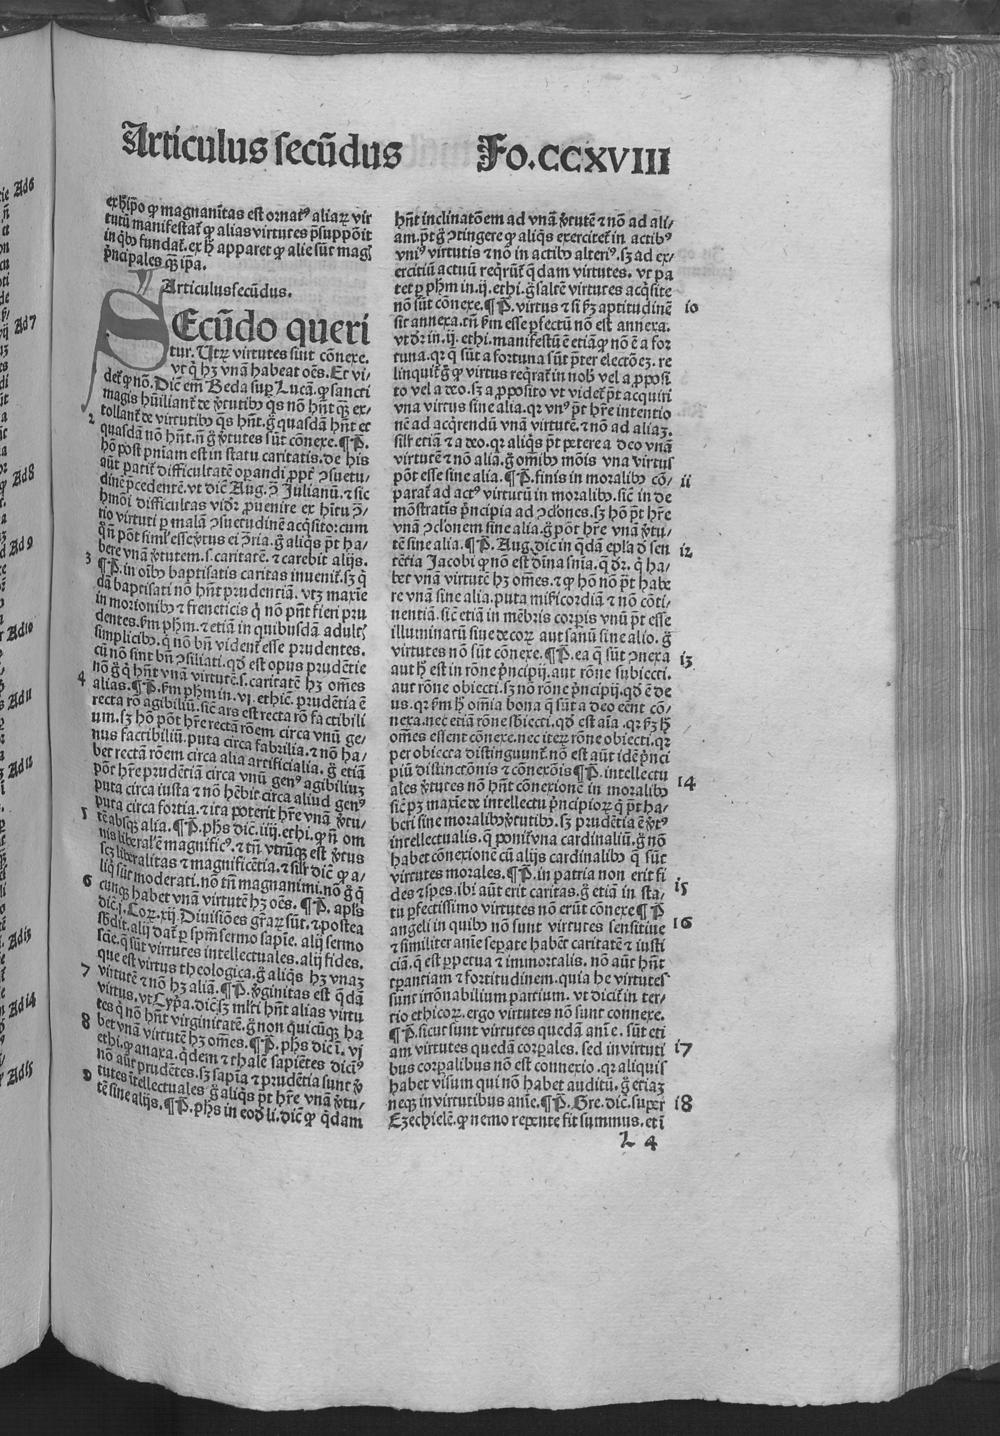 Articulus secūdus Fo.CCXVIII
ex hīpo ꝙ magnanītas est ornatꝰ aliaꝝ vir
tutū manifestat̄ ꝙ alias virtutes p̄suppōit
in qꝰ fundat̄. ex h̄ apparet ꝙ alie sūt magꝭ
p̄ncipales q̄ꝫ ip̄a.
Articulus secūdus.
SEcūdo queri
tur. Utꝝ virtutes sint cōnexe.
vt q̄ hꝫ vnā habeat oēs. Et vi-
det̄ ꝙ nō. Dic̄ em̄ Beda sup̄ Lucā. ꝙ sancti
magis hūiliant̄ de v̄tutibꝰ qs nō hn̄t q̄ꝫ ex-
tollant̄ de virtutibꝰ qs hn̄t. ḡ quasdā hn̄t et
2 quasdā nō hn̄t. n̄ ḡ v̄tutes sūt cōnexe. ¶ P̄.
hō post pn̄iam est in statu caritatis. de his
aūt patit̄ difficultatē oꝑandi ꝓpt̄ ↄsuetu-
dinē p̄cedentē. vt dic̄ Aug. ↄ̄ Julianū. ⁊ sic
hmōi difficultas vidr̄ ꝓuenire ex hītu ↄ̄-
rio virtuti ꝑ malā ↄsuetudinē acq̄sito: cum
q̄ n̄ pōt simĺ esse v̄tus ei ↄ̄ria. ḡ aliqs pt̄ ha-
bere vnā v̄tutem. s. caritatē. ⁊ carebit alijs.
3 ¶ P̄. in oībꝰ baptisatis caritas inuenit̄. sꝫ q̄
dā baptisati nō hn̄t prudentiā. vtꝫ maxīe
in morionibꝰ ⁊ freneticis q̄ nō pn̄t fieri pru
dentes. ẜm phm̄. ⁊ etiā in quibusdā adultꝭ
simplicibꝰ. q̄ nō bn̄ vident̄ esse prudentes.
cū nō sint bn̄ ↄsiliati. qd̄ est opus prudētie
nō ḡ q̄ hn̄t vnā virtutē. s. caritatē hꝫ om̄es
4 alias. ¶ P̄. ẜm phm̄ in. vj. ethic̄. prudētia ē
recta rō agibiliū. sic̄ ars est recta rō factibili
um. sꝫ hō pōt hr̄e rectā rōem circa vnū ge-
nus factibiliū. puta circa fabrilia. ⁊ nō ha-
bet rectā rōem circa alia artificialia. ḡ etiā
pōt hr̄e prudētiā circa vnū genꝰ agibiliuꝫ
puta circa iusta ⁊ nō hēbit circa aliud genꝰ
puta circa fortia. ⁊ ita poterit hr̄e vnā v̄tu-
5 tē absqꝫ alia. ¶ P̄. phs̄ dic̄. iiij. ethi. ꝙ n̄ om
nis liberal̄ ē magnificꝰ. ⁊ tn̄ vtrūqꝫ est v̄tus
scꝫ liberalitas ⁊ magnificētia. ⁊ silr̄ dic̄ ꝙ a-
liq̄ sūt moderati. nō tn̄ magnanimi. nō ḡ q̄
6 cunqꝫ habet vnā virtutē hꝫ oēs. ¶ P̄. apl̄s
dic̄. j. Coꝝ. xij. Diuisiōes gr̄aꝝ sūt. ⁊ postea
sb̄dit. alij dat̄ ꝑ spm̄ sermo sapīe. alij sermo
scīe. q̄ sūt virtutes intellectuales. alij fides.
que est virtus theologica. ḡ aliqs hꝫ vnaꝫ
7 virtutē ⁊ nō hꝫ aliā. ¶ P̄. v̄ginitas est q̄dā
virtus. vt Cyp̄a. dic̄. sꝫ ml̄ti hn̄t alias virtu
tes q̄ nō hn̄t virginitatē. ḡ non quicūqꝫ ha
8 bet vnā virtutē hꝫ om̄es. ¶ P̄. phs̄ dic̄ ī. vj
ethi. ꝙ anaxa. q̄dem ⁊ thalē sapiētes dicim̄ꝰ
nō aūt prudētes. sꝫ sapīa ⁊ prudētia sunt v̄
9 tutes ītellectuales. ḡ aliqs pt̄ hr̄e vnā v̄tu-
tē sine alijs. ¶ P̄. phs̄ in eod̄ li. dic̄ ꝙ q̄dam
hn̄t inclinatōem ad vnā v̄tutē ⁊ nō ad ali-
am. pt̄ ḡ ↄtingere ꝙ aliqs exercitet̄ in actibꝰ
vniꝰ virtutis ⁊ nō in actibꝰ alteriꝰ. sꝫ ad ex-
ercitiū actuū req̄rūt̄ q̄dam virtutes. vt pa
tet ꝑ phm̄ in. ij. ethi. ḡ saltē virtutes acq̄site
10 nō sūt cōnexe. ¶ P̄. virtus ⁊ si ẜꝫ aptitudinē
sit annexa. tn̄ ẜm esse ꝑfectū nō est annexa.
vt dr̄ in. ij. ethi. manifestū ē etiā ꝙ nō ē a for
tuna. qꝛ q̄ sūt a fortuna sūt p̄ter electōeꝫ. re
linquit̄ ḡ ꝙ virtus req̄rat̄ in nob̄ vel a ꝓposi
to vel a deo. sꝫ a ꝓposito vt videt̄ pt̄ acquiri
vna virtus sine alia. qꝛ vnꝰ pt̄ hr̄e intentio
nē ad acq̄rendū vnā virtutē. ⁊ nō ad aliaꝫ.
silr̄ etiā ⁊ a deo. qꝛ aliqs pt̄ petere a deo vnā
virtutē ⁊ nō aliā. ḡ om̄ibꝰ mōis vna virtus
11 pōt esse sine alia. ¶ P̄. finis in moralibꝰ cō-
parat̄ ad actꝰ virtutū in moralibꝰ. sic̄ in de
mōstratīs p̄ncipia ad ↄclōnes. sꝫ hō pt̄ hr̄e
vnā ↄclōnem sine alia. ḡ pōt hr̄e vnā v̄tu-
12 tē sine alia. ¶ P̄. Aug. dic̄ in q̄dā epl̄a d̄ sen
tētia Jacobi ꝙ nō est dīna snīa. q̄ dr̄. q̄ ha-
bet vnā virtutē hꝫ om̄es. ⁊ ꝙ hō nō pt̄ habe
re vnā sine alia. puta misicordiā ⁊ nō cōti-
nentiā. sic̄ etiā in mēbris corpꝑis vnū pt̄ esse
illuminatū siue decoꝝ aut sanū sine alio. ḡ
13 virtutes nō sūt cōnexe. ¶ P̄. ea q̄ sūt ↄnexa
aut h̄ est in rōne p̄ncipij. aut rōne subiecti.
aut rōne obiecti. sꝫ nō rōne p̄ncipij. qd̄ ē de
us. qꝛ ẜm h̄ om̄ia bona q̄ sūt a deo eēnt cō-
nexa. nec etiā rōne sb̄iecti. qd̄ est aīa. qꝛ ẜꝫ h̄
om̄es essent cōnexe. nec iteꝝ rōne obiecti. qꝛ
per obiecta distinguunt̄. nō est aūt idē p̄nci
14 piū distinctōnis ⁊ cōnexōis ¶ P̄. intellectu
ales v̄tutes nō hn̄t cōnexionē in moralibꝰ
sic̄ pꝫ maxīe de intellectu p̄ncipioꝝ q̄ pt̄ ha-
beri sine moralibꝰ v̄tutibꝰ. sꝫ prudētia ē v̄tꝰ
intellectualis. q̄ ponit̄ vna cardinaliū. ḡ nō
habet cōnexionē cū alijs cardinalibꝰ q̄ sūt
15 virtutes morales. ¶ P̄. in patria non erit fi
des ⁊ spes. ibi aūt erit caritas. ḡ etiā in sta-
16 tu ꝑfectissimo virtutes nō erūt cōnexe ¶ P̄
angeli in quibꝰ nō sunt virtutes sensitiue
⁊ similiter anīe seꝑate habēt caritatē ⁊ iusti
ciā. q̄ est ꝑpetua ⁊ immortalis. nō aūt hn̄t
tꝑantiam ⁊ fortitudinem. quia he virtutes
sunt irrōnabilium partium. vt dicit̄ in ter-
tio ethicoꝝ. ergo virtutes nō sunt connexe.
17 ¶ P̄. sicut sunt virtutes quedā anīe. sūt eti
am virtutes quedā corꝑales. sed in virtuti
bus corꝑalibus nō est connexio. qꝛ aliquis
habet visum qui nō habet auditū. ḡ etiaꝫ
18 neqꝫ in virtutibus anīe. ¶ P̄. Gre. dic̄. super
Ezechielē. ꝙ nemo repente fit summus. et ī
L 4
Ad6
Ad7
Ad8
Ad9
Ad10
Ad11
Ad12
Ad13
Ad14
Ad15